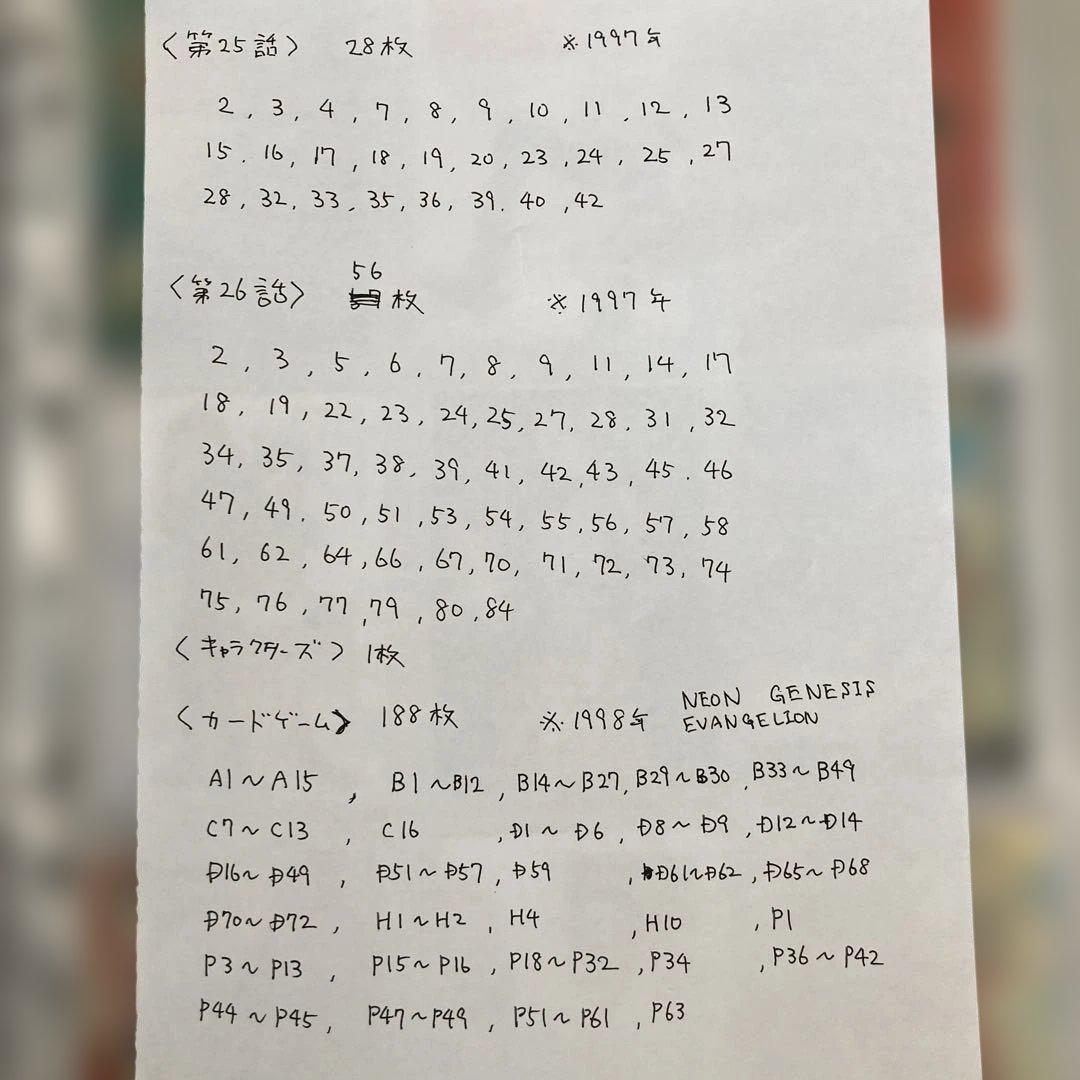 〈第25話〉 28枚 ※1997年
2, 3, 4, 7, 8, 9, 10, 11, 12, 13
15, 16, 17, 18, 19, 20, 23, 24, 25, 27
28, 32, 33, 35, 36, 39, 40, 42
56
〈第26話〉 枚 ※1997年
2, 3, 5, 6, 7, 8, 9, 11, 14, 17
18, 19, 22, 23, 24, 25, 27, 28, 31, 32
34, 35, 37, 38, 39, 41, 42, 43, 45, 46
47, 49, 50, 51, 53, 54, 55, 56, 57, 58
61, 62, 64, 66, 67, 70, 71, 72, 73, 74
75, 76, 77, 79, 80, 84
〈キャラクターズ〉 1枚
〈カードゲーム〉 188枚 ※1998年 NEON GENESIS
EVANGELION
A1〜A15, B1〜B12, B14〜B27, B29〜B30, B33〜B49
C7〜C13, C16, D1〜D6, D8〜D9, D12〜D14
D16〜D49, D51〜D57, D59, D61〜D62, D65〜D68
D70〜D72, H1〜H2, H4, H10, P1
P3〜P13, P15〜P16, P18〜P32, P34, P36〜P42
P44〜P45, P47〜P49, P51〜P61, P63